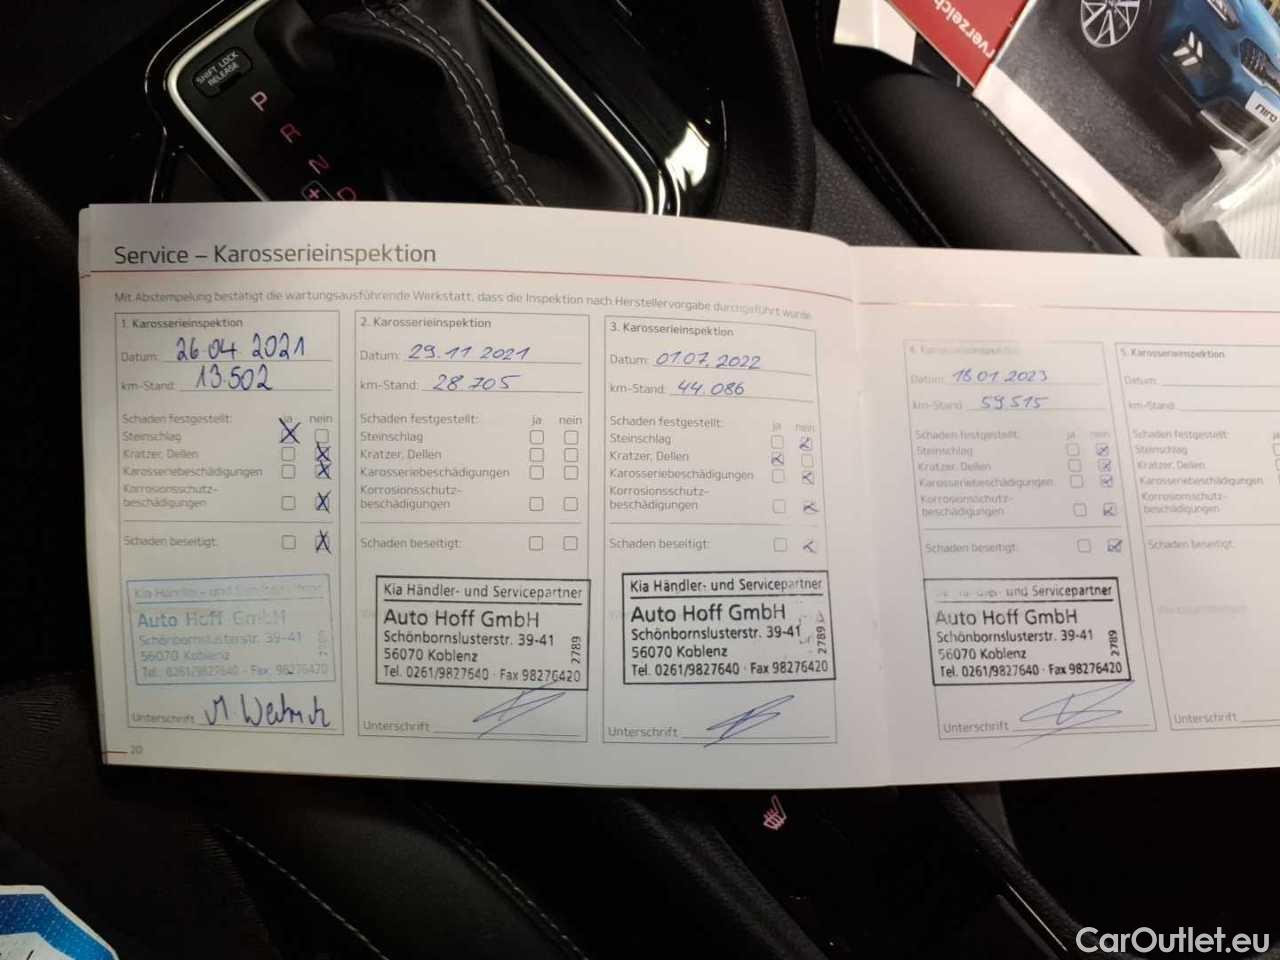 SHIFT LOCK
RELEASE
P
R
N
D
+
Service – Karosserieinspektion
Mit Abstempelung bestätigt die wartungsausführende Werkstatt, dass die Inspektion nach Herstellervorgabe durchgeführt wurde.
1. Karosserieinspektion
Datum: 26.04.2021
km-Stand: 13.502
Schaden festgestellt: ja nein
Steinschlag
Kratzer, Dellen
Karosseriebeschädigungen
Korrosionsschutz-
beschädigungen
Schaden beseitigt:
Kia Händler- und
Auto Hoff GmbH
Schönbornslusterstr. 39-41
56070 Koblenz
Tel. 0261/9827640 · Fax 98276420
2789
Unterschrift
20
2. Karosserieinspektion
Datum: 29.11.2021
km-Stand: 28.705
Schaden festgestellt: ja nein
Steinschlag
Kratzer, Dellen
Karosseriebeschädigungen
Korrosionsschutz-
beschädigungen
Schaden beseitigt:
Kia Händler- und Servicepartner
Auto Hoff GmbH
Schönbornslusterstr. 39-41
56070 Koblenz
Tel. 0261/9827640 · Fax 98276420
2789
Unterschrift
3. Karosserieinspektion
Datum: 01.07.2022
km-Stand: 44.086
Schaden festgestellt: ja nein
Steinschlag
Kratzer, Dellen
Karosseriebeschädigungen
Korrosionsschutz-
beschädigungen
Schaden beseitigt:
Kia Händler- und Servicepartner
Auto Hoff GmbH
Schönbornslusterstr. 39-41
56070 Koblenz
Tel. 0261/9827640 · Fax 98276420
2789
Unterschrift
4. Karosserieinspektion
Datum: 18.01.2023
km-Stand: 59.515
Schaden festgestellt: ja nein
Steinschlag
Kratzer, Dellen
Karosseriebeschädigungen
Korrosionsschutz-
beschädigungen
Schaden beseitigt:
und Servicepartner
Auto Hoff GmbH
Schönbornslusterstr. 39-41
56070 Koblenz
Tel. 0261/9827640 · Fax 98276420
2789
Unterschrift
5. Karosserieinspektion
Datum:
km-Stand:
Schaden festgestellt:
Steinschlag
Kratzer, Dellen
Karosseriebeschädigungen
Korrosionsschutz-
beschädigungen
Schaden beseitigt:
Unterschrift
CarOutlet.eu